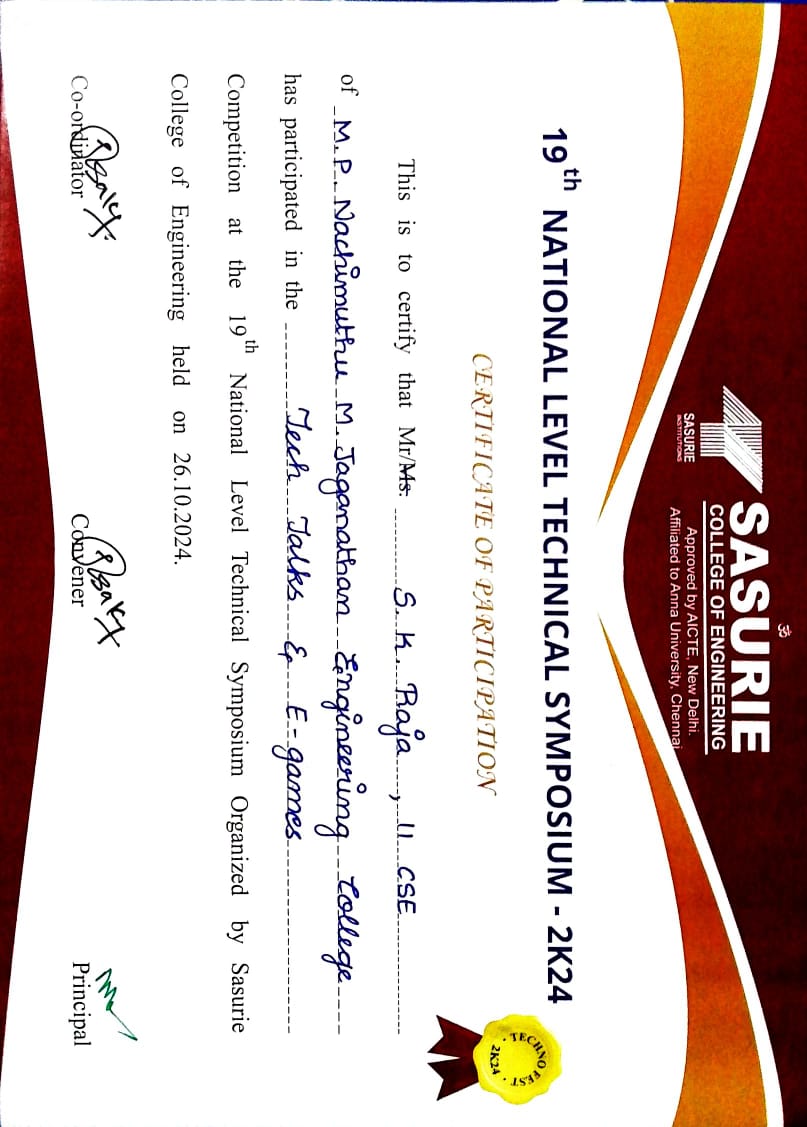 ॐ
SASURIE
COLLEGE OF ENGINEERING
Approved by AICTE, New Delhi.
Affiliated to Anna University, Chennai
SASURIE
INSTITUTIONS
19th NATIONAL LEVEL TECHNICAL SYMPOSIUM - 2K24
CERTIFICATE OF PARTICIPATION
This is to certify that Mr/Ms. S. K. Raja, II CSE
of M.P. Nachimuthu M. Jaganathan Engineering College
has participated in the Tech Talks & E-games
Competition at the 19th National Level Technical Symposium Organized by Sasurie
College of Engineering held on 26.10.2024.
Co-ordinator
Convener
Principal
· TECHNO FEST ·
2K24